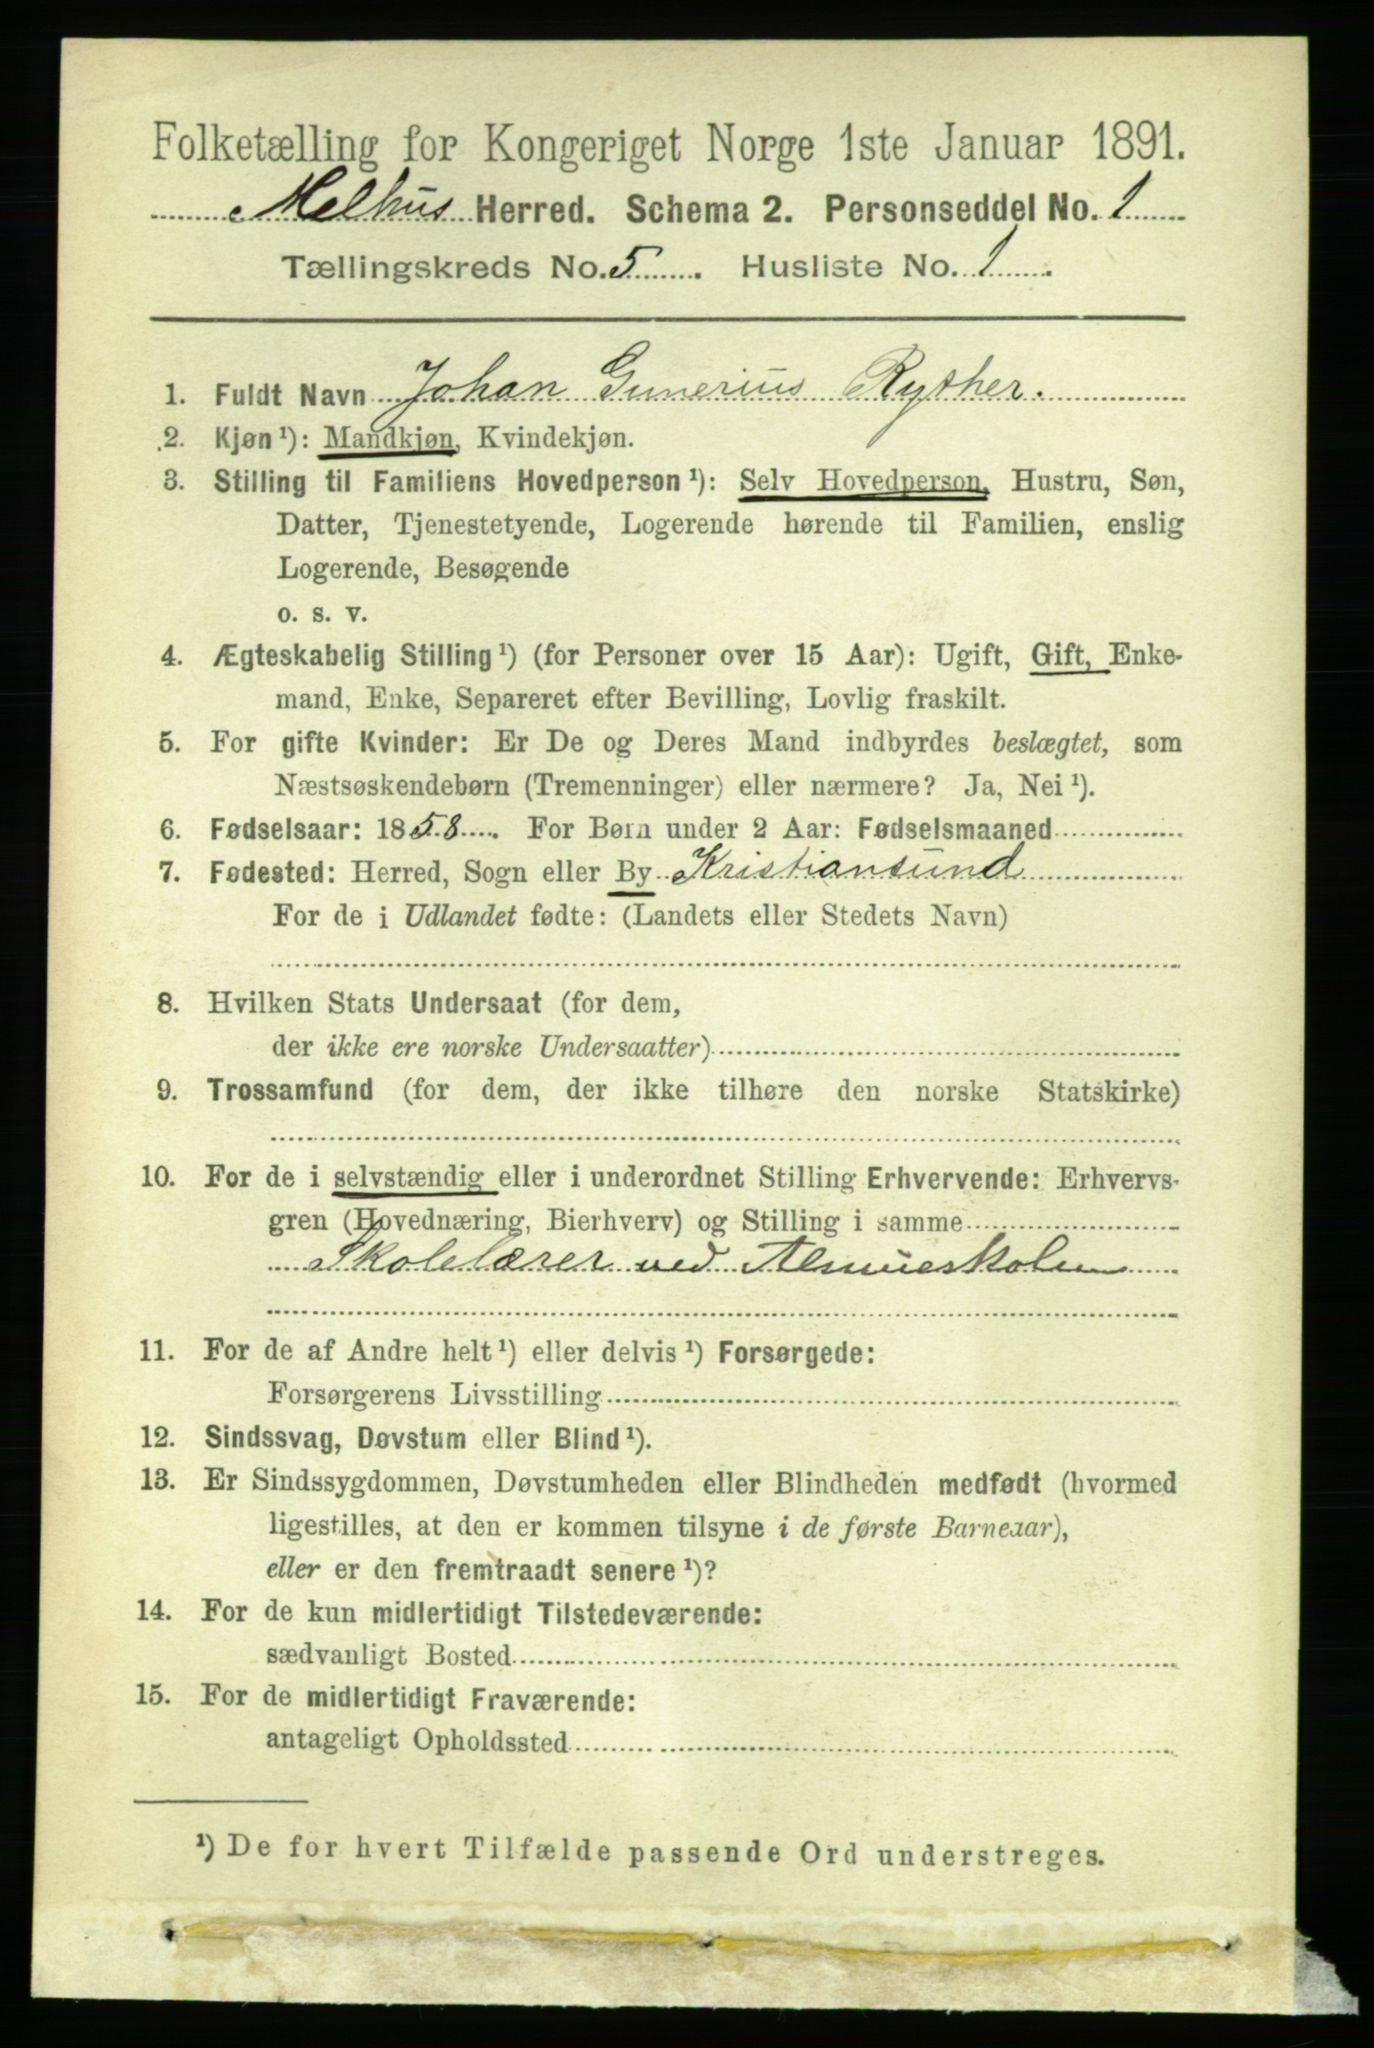 Folketælling for Kongeriget Norge 1ste Januar 1891.
Melhus Herred. Schema 2. Personseddel No. 1
Tællingskreds No. 5. Husliste No. 1.
1. Fuldt Navn Johan Gunerius Ryther.
2. Kjøn ¹): Mandkjøn, Kvindekjøn.
3. Stilling til Familiens Hovedperson ¹): Selv Hovedperson, Hustru, Søn,
Datter, Tjenestetyende, Logerende hørende til Familien, enslig
Logerende, Besøgende
o. s. v.
4. Ægteskabelig Stilling ¹) (for Personer over 15 Aar): Ugift, Gift, Enke-
mand, Enke, Separeret efter Bevilling, Lovlig fraskilt.
5. For gifte Kvinder: Er De og Deres Mand indbyrdes beslægtet, som
Næstsøskendebørn (Tremenninger) eller nærmere? Ja, Nei ¹).
6. Fødselsaar: 1858. For Børn under 2 Aar: Fødselsmaaned
7. Fødested: Herred, Sogn eller By Kristiansund
For de i Udlandet fødte: (Landets eller Stedets Navn)
8. Hvilken Stats Undersaat (for dem,
der ikke ere norske Undersaatter)
9. Trossamfund (for dem, der ikke tilhøre den norske Statskirke)
10. For de i selvstændig eller i underordnet Stilling Erhvervende: Erhvervs-
gren (Hovednæring, Bierhverv) og Stilling i samme
Skolelærer ved Almueskolen
11. For de af Andre helt ¹) eller delvis ¹) Forsørgede:
Forsørgerens Livsstilling
12. Sindssvag, Døvstum eller Blind ¹).
13. Er Sindssygdommen, Døvstumheden eller Blindheden medfødt (hvormed
ligestilles, at den er kommen tilsyne i de første Barneaar),
eller er den fremtraadt senere ¹)?
14. For de kun midlertidigt Tilstedeværende:
sædvanligt Bosted
15. For de midlertidigt Fraværende:
antageligt Opholdssted
¹) De for hvert Tilfælde passende Ord understreges.